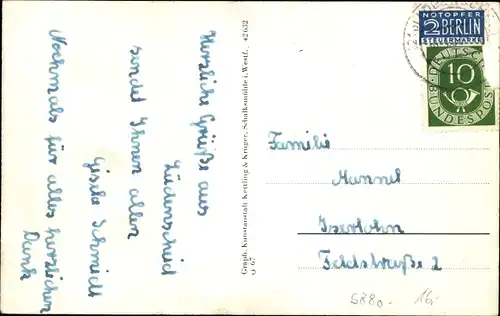 Herzliche Grüße aus
Lüdenscheid
sendet Ihnen allen
Gisela Schmidt
Nochmals für alles herzlichen
Dank
Graph. Kunstanstalt Kettling & Krüger, Schalksmühle i. Westf. 42632
O 67
NOTOPFER
2 BERLIN
STEUERMARKE
DEUTSCHE BUNDESPOST
10
Familie
Mannel
Iserlohn
Feldstraße 2
5880.- 16,-